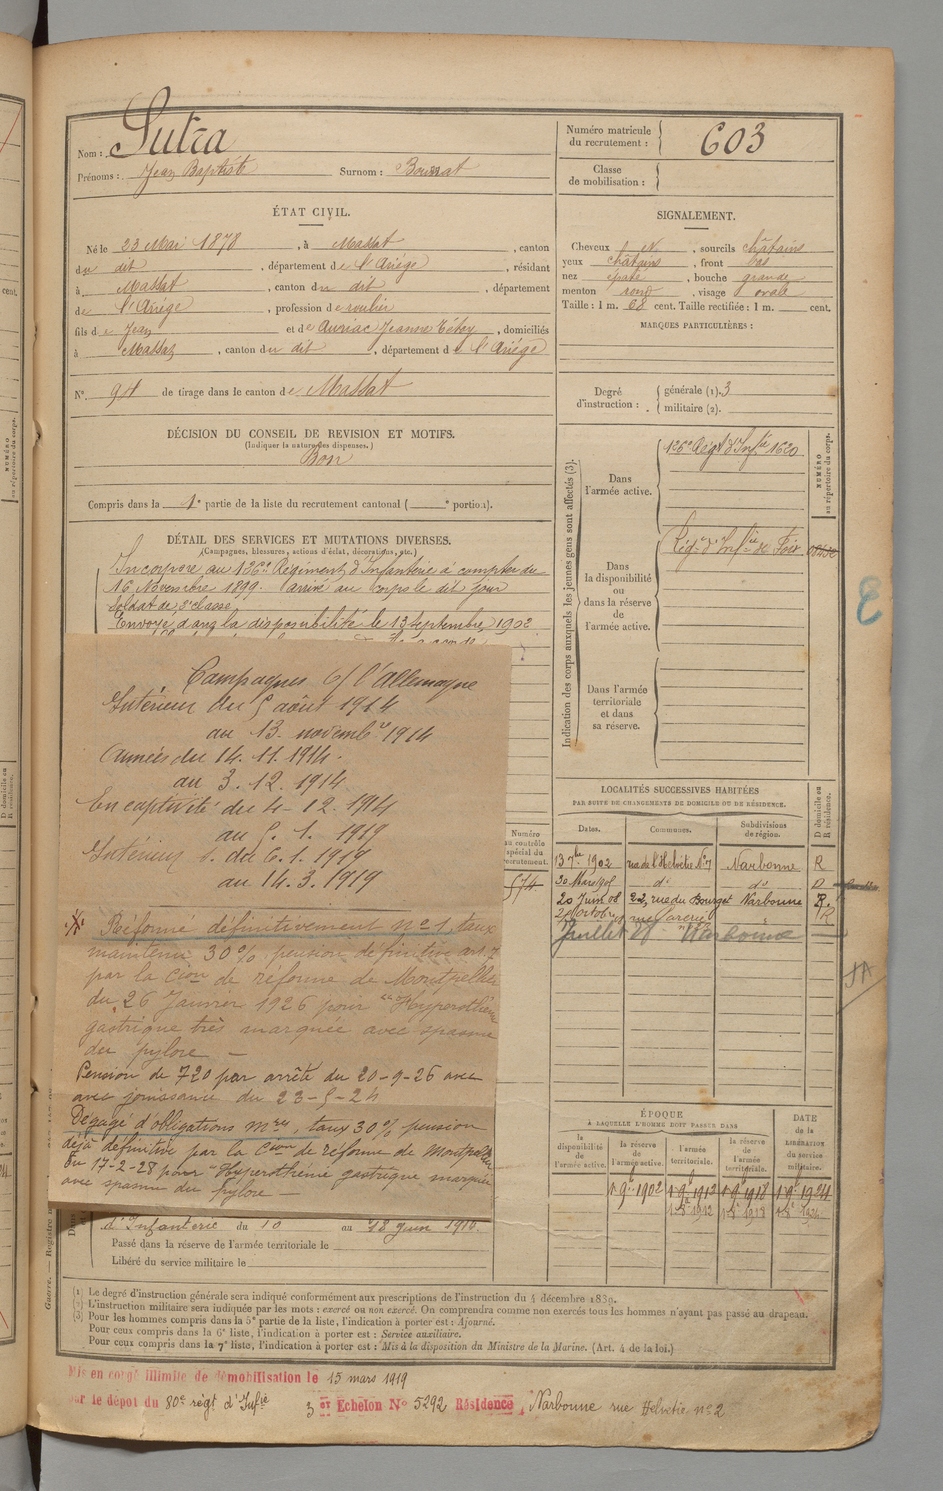 Nom : Sutra
Prénoms : Jean Baptiste Surnom : Bourrat
Numéro matricule du recrutement : 603
Classe de mobilisation :
ÉTAT CIVIL.
Né le 23 Mai 1878, à Massat, canton
du dit, département de l'Ariège, résidant
à Massat, canton du dit, département
de l'Ariège, profession de roulier
fils de Jean et de Auriac Jeanne, domiciliés
à Massat, canton du dit, département de l'Ariège
N° 94 de tirage dans le canton de Massat
SIGNALEMENT.
Cheveux N, sourcils châtains
yeux châtains, front bas
nez épaté, bouche grande
menton rond, visage ovale
Taille : 1 m. 68 cent. Taille rectifiée : 1 m. cent.
MARQUES PARTICULIÈRES :
Degré d'instruction : générale (1). 3
militaire (2).
DÉCISION DU CONSEIL DE REVISION ET MOTIFS.
(Indiquer la nature des dispenses.)
Bon
Compris dans la 1e partie de la liste du recrutement cantonal ( e portion).
DÉTAIL DES SERVICES ET MUTATIONS DIVERSES.
(Campagnes, blessures, actions d'éclat, décorations, etc.)
Incorporé au 126e Régiment d'Infanterie à compter du
16 Novembre 1899. arrivé au corps le dit jour
soldat de 2e classe.
Envoyé dans la disponibilité le 13 septembre 1902
Campagnes c/ l'Allemagne
Intérieur du 5 août 1914
au 13 novembre 1914
Armées du 14.11.1914.
au 3.12.1914
En captivité du 4-12.1914
au 5.1.1919
Intérieur du 6.1.1919
au 14.3.1919
Réformé définitivement n° 1, taux
maintenu 30% pension définitive art. 7
par la Cion de réforme de Montpellier
du 26 Janvier 1926 pour "Hypersthénie
gastrique très marquée avec spasme
du pylore —
Pension de 720 par arrêté du 20-9-26 avec
avec jouissance du 23-5-24
Dégagé d'obligations mres, taux 30% pension
déjà définitive par la Cion de réforme de Montpellier
du 17-2-28 pour "Hypersthénie gastrique marquée
avec spasme du pylore —
d'Infanterie du 10 au 18 Juin 1916.
Passé dans la réserve de l'armée territoriale le
Libéré du service militaire le
Indication des corps auxquels les jeunes gens sont affectés (3).
NUMÉRO au répertoire du corps.
Dans l'armée active.
126e Régt d'Infie 1620
Dans la disponibilité ou dans la réserve de l'armée active.
Régt d'Infie de Foix
Dans l'armée territoriale et dans sa réserve.
Numéro au contrôle spécial du recrutement.
574
LOCALITÉS SUCCESSIVES HABITÉES
PAR SUITE DE CHANGEMENTS DE DOMICILE OU DE RÉSIDENCE.
Dates. Communes. Subdivisions de région. D domicile ou R résidence.
13 7bre 1902 rue de l'Helvétie N° 7 Narbonne R
30 Mars 1905 d° d° D
20 Juin 08 22, rue du Bourget Narbonne R.
Juillet Narbonne
ÉPOQUE
À LAQUELLE L'HOMME DOIT PASSER DANS
la disponibilité de l'armée active.
la réserve de l'armée active.
l'armée territoriale.
la réserve de l'armée territoriale.
DATE de la LIBÉRATION du service militaire.
1 9bre 1902 1 9bre 1912 1 9bre 1918 1 9bre 1924
(1) Le degré d'instruction générale sera indiqué conformément aux prescriptions de l'instruction du 4 décembre 1889.
(2) L'instruction militaire sera indiquée par les mots : exercé ou non exercé. On comprendra comme non exercés tous les hommes n'ayant pas passé au drapeau.
(3) Pour les hommes compris dans la 5e partie de la liste, l'indication à porter est : Ajourné.
Pour ceux compris dans la 6e liste, l'indication à porter est : Service auxiliaire.
Pour ceux compris dans la 7e liste, l'indication à porter est : Mis à la disposition du Ministre de la Marine. (Art. 4 de la loi.)
Mis en congé illimité de démobilisation le 15 mars 1919
par le dépôt du 80e régt d'Infie 3 er Echelon N° 5292 Résidence Narbonne rue Helvétie n° 2